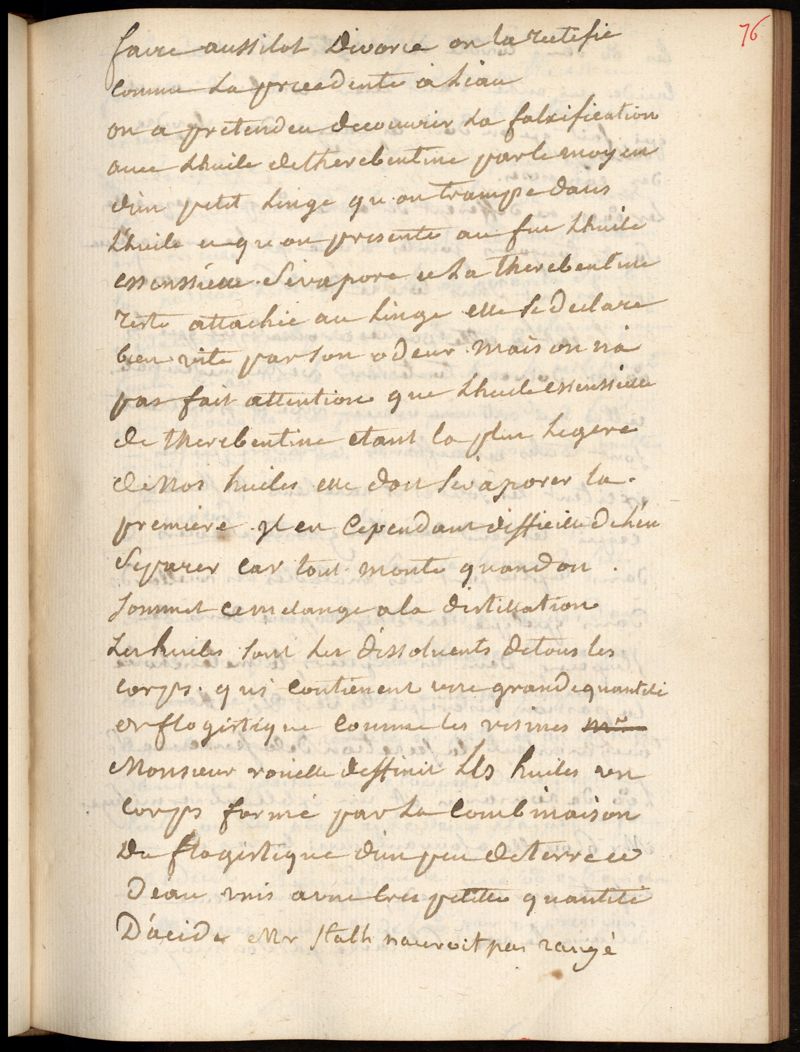 76
faire aussitot Divorce on la rectifie
comme La precedente a L'eau
on a pretendeu decouvrir La falsification
avec L'huile de therebentine par le moyen
d'un petit Linge qu'on trampe dans
L'huile e qu'on presente au feu L'huile
essenssielle s'evapore e La therebentine
reste attachée au Linge elle se declare
bien vite par son odeur mais on n'a
pas fait attention que L'huile essenssielle
de therebentine etant la plus Legere
de Nos huiles elle doit s'evaporer la
premiere yl en Cependant difficille de L'en
separer car tout monte quand on
soumet ce melange a la distillation
Les huiles sont Les dissolvents de tous les
corps qui contienent une grande quantité
de flogistique comme les resines mr
Monsieur rouelle deffinit Les huiles un
corps formé par La Combinaison
Du flogistique d'un peu de terre e
d'eau unis avec tres petite quantité
D'acide Mr Stalh n'auroit pas rangé